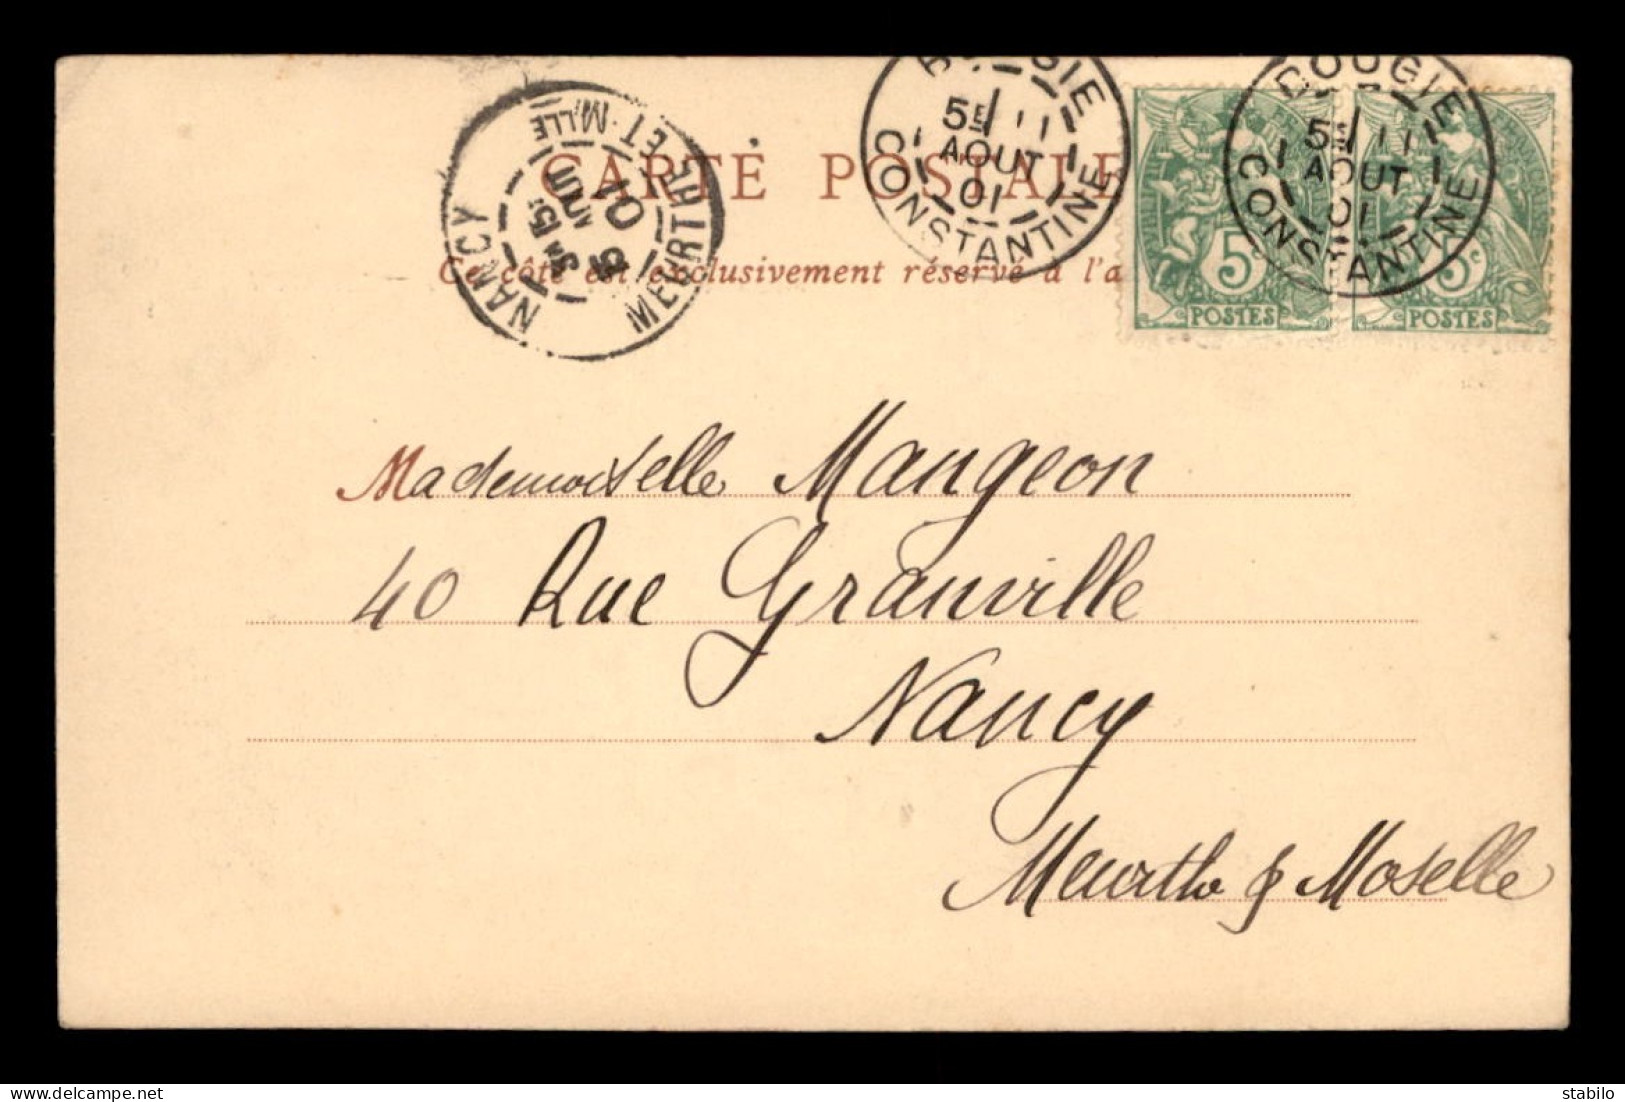 CARTE POSTALE
Ce côté est exclusivement réservé à l'a
NANCY
MEURTHE ET MLLE
15
AOUT
01
BOUGIE
5E 11
AOUT
01
CONSTANTINE
BOUGIE
5E 11
AOUT
01
CONSTANTINE
5c
POSTES
5c
POSTES
Mademoiselle Mangeon
40 Rue Granville
Nancy
Meurthe & Moselle
delcampe.net
stabilo